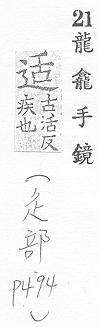 21龍龕手鏡
适
古活反
疾也
(辵部
P494)